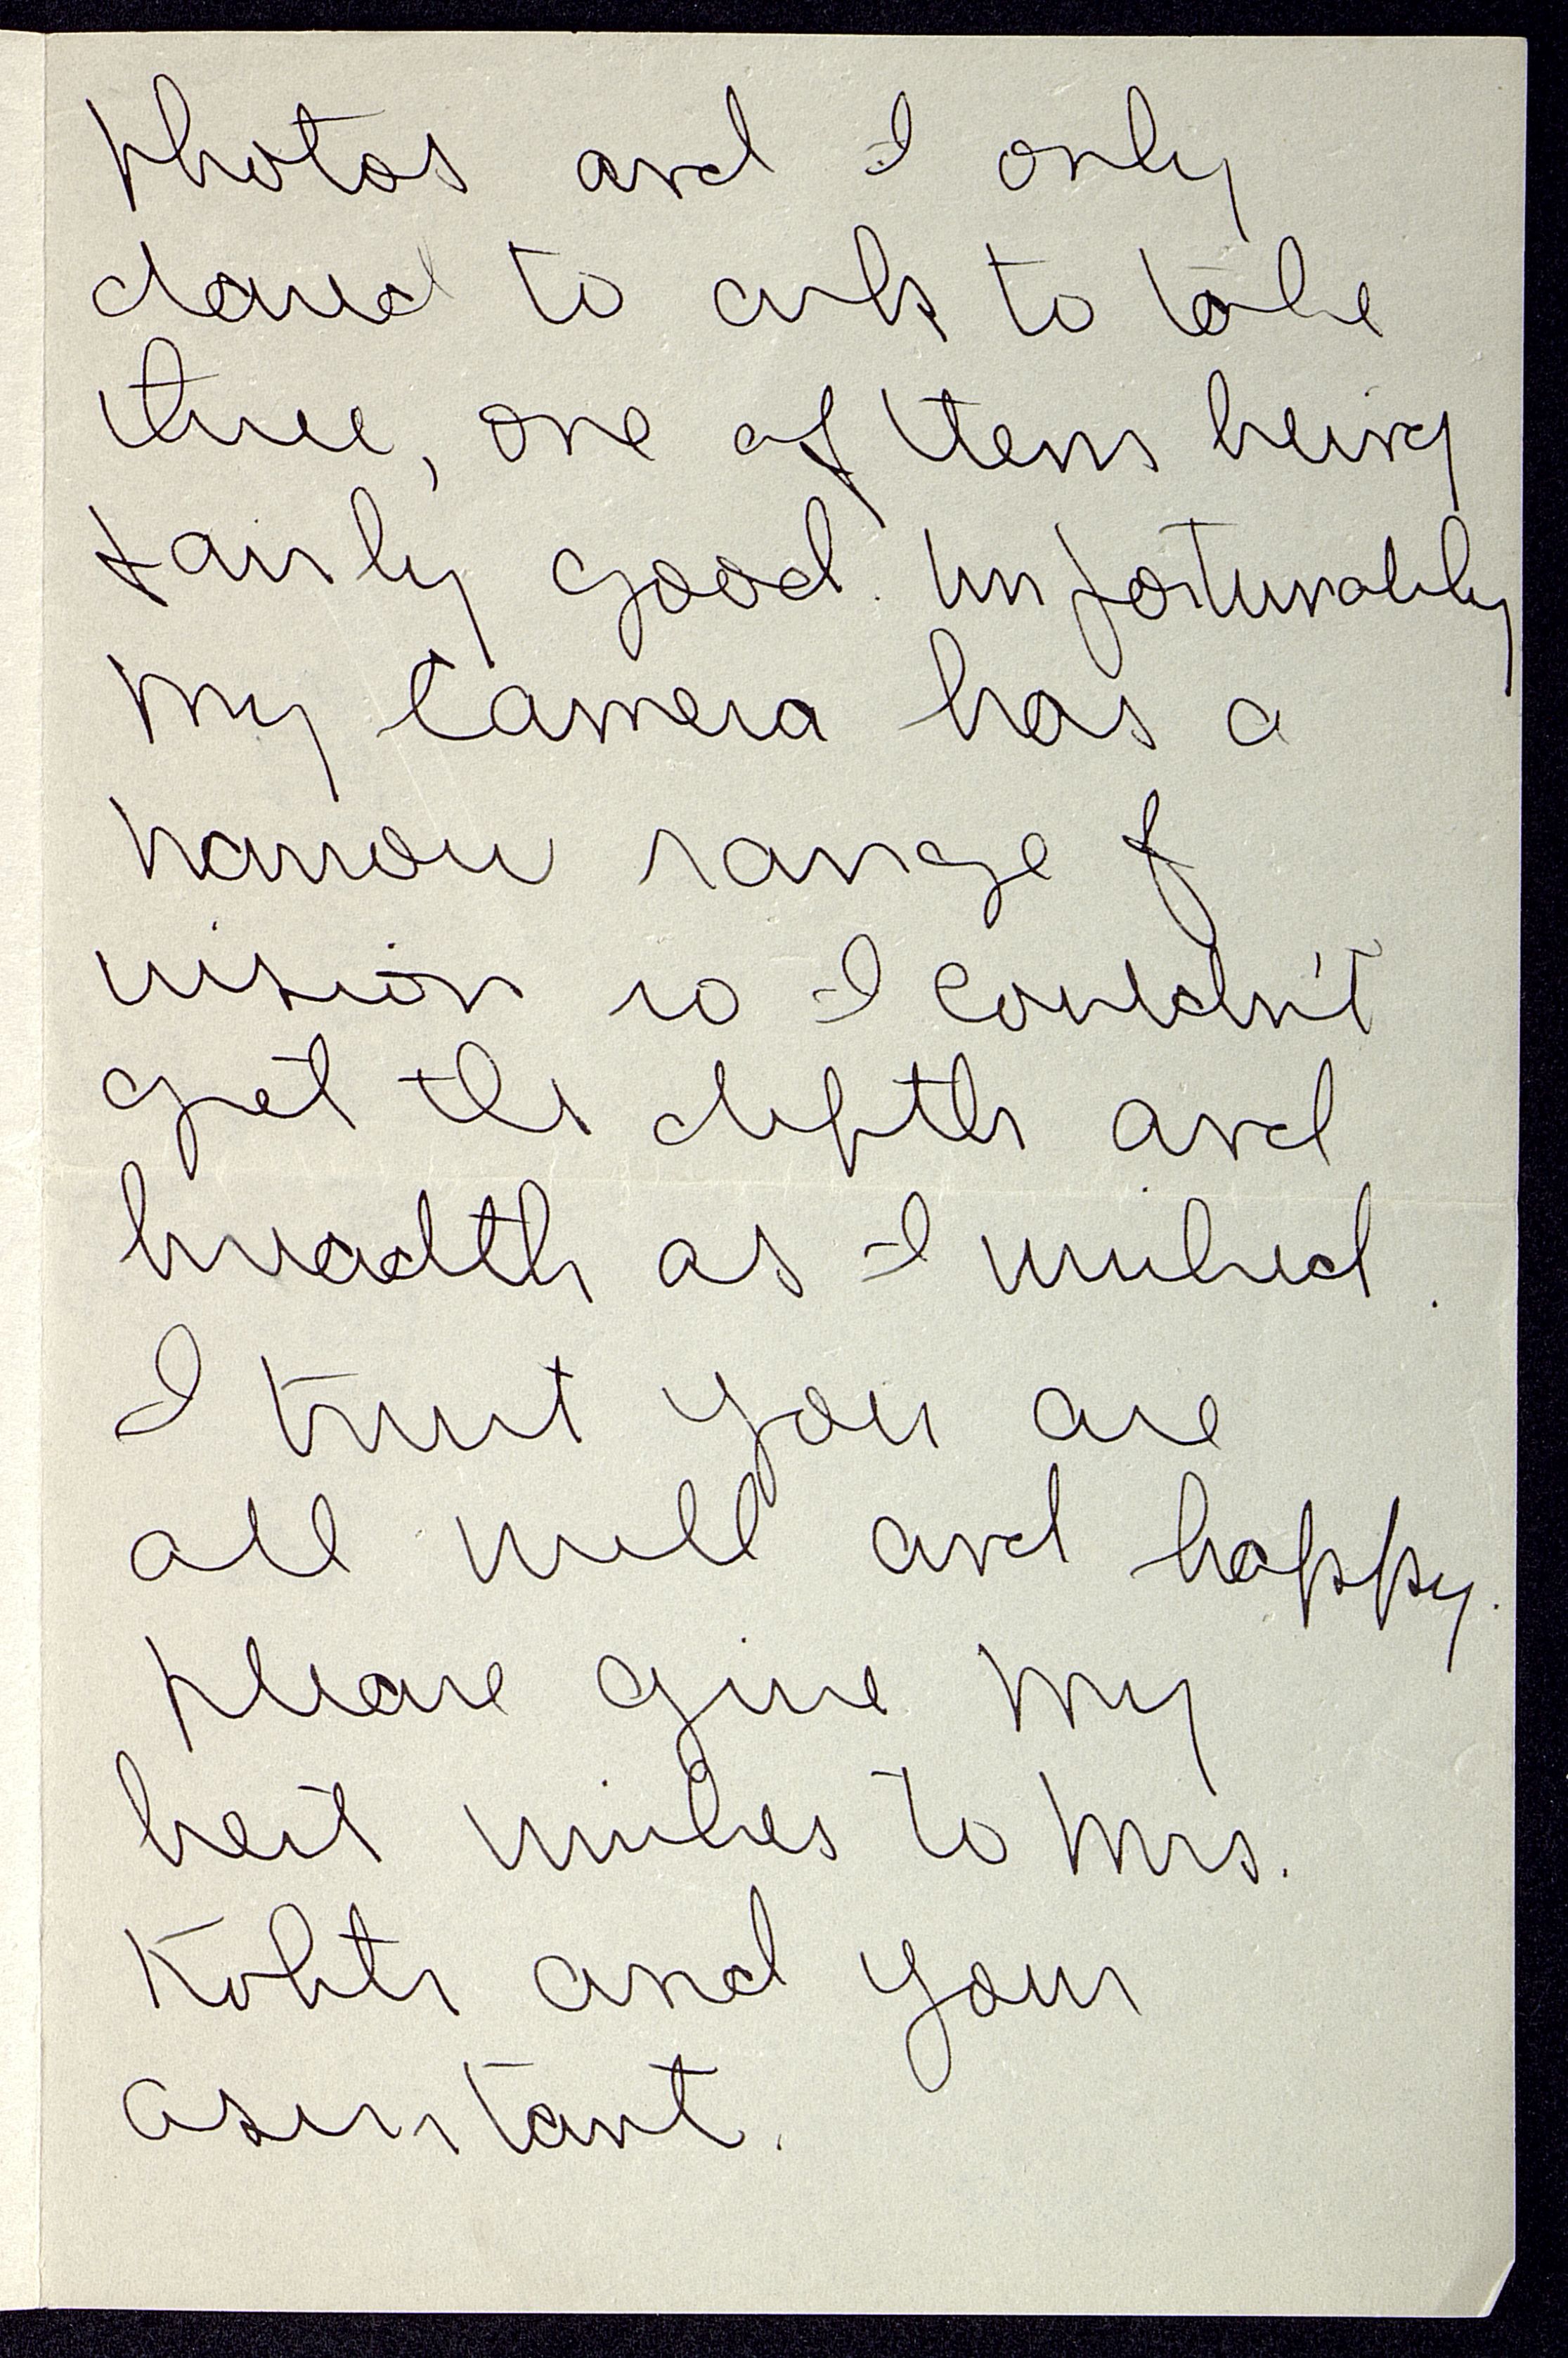 photos and I only
dared to ask to take
three, one of them being
fairly good. Unfortunately
my camera has a
narrow range of
vision so I couldn't
get the depth and
breadth as I wished.
I trust you are
all well and happy.
Please give my
best wishes to Mrs.
Kohts and your
assistant.